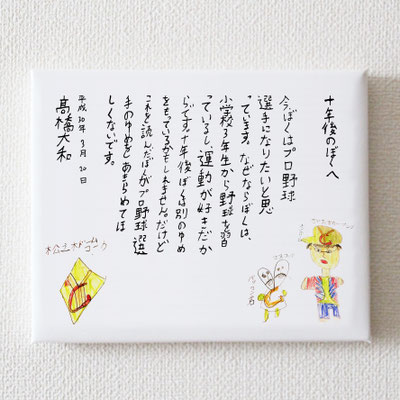 十年後のぼくへ
今ぼくはプロ野球
選手になりたいと思
っています。なぜならぼくは、
小学校3年生から野球を習
っているし、運動が好きだか
らです。十年後ぼくは別のゆめ
をもっているかもしれません。だけど
これを読んだぼくがプロ野球選
手のゆめをあきらめてほ
しくないです。
平成30年3月20日
髙橋大和